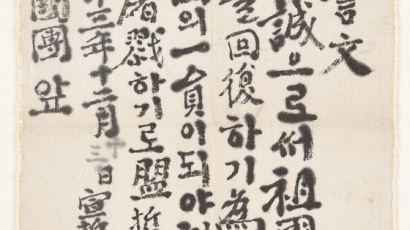 誓文
誠으로써 祖國
를 回復하기 爲
의 一員이 되야
屠戮하기로 盟誓
三年十二月十三日 宣誓
國團 앞